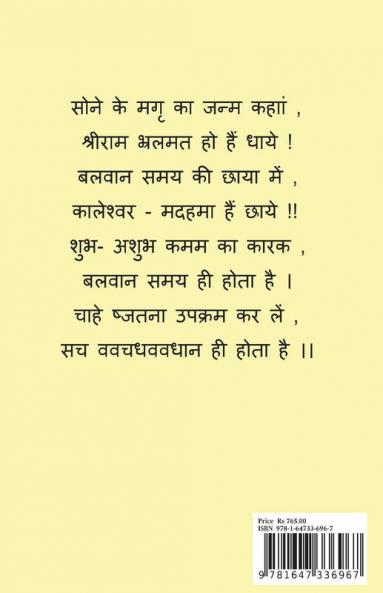 सोने के मगृ का जन्म कहाां ,
श्रीराम भ्रलमत हो हैं धाये !
बलवान समय की छाया में ,
कालेश्वर - मदहमा हैं छाये !!
शुभ- अशुभ कमम का कारक ,
बलवान समय ही होता है ।
चाहे ष्जतना उपक्रम कर लें ,
सच ववचधववधान ही होता है ।।
Price Rs 765.00
ISBN 978-1-64733-696-7
9 781647 336967